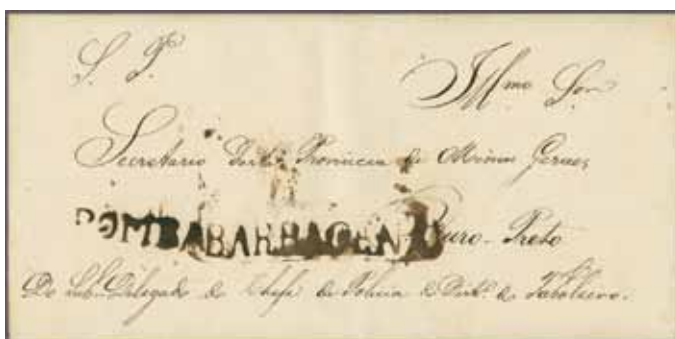 S. P.
Illmo Snr
Secretario desta Provincia de Minas Geraes
POMBA BARBACENA Ouro-Preto
Do Sub-Delegado do Chefe da Policia do Distº de